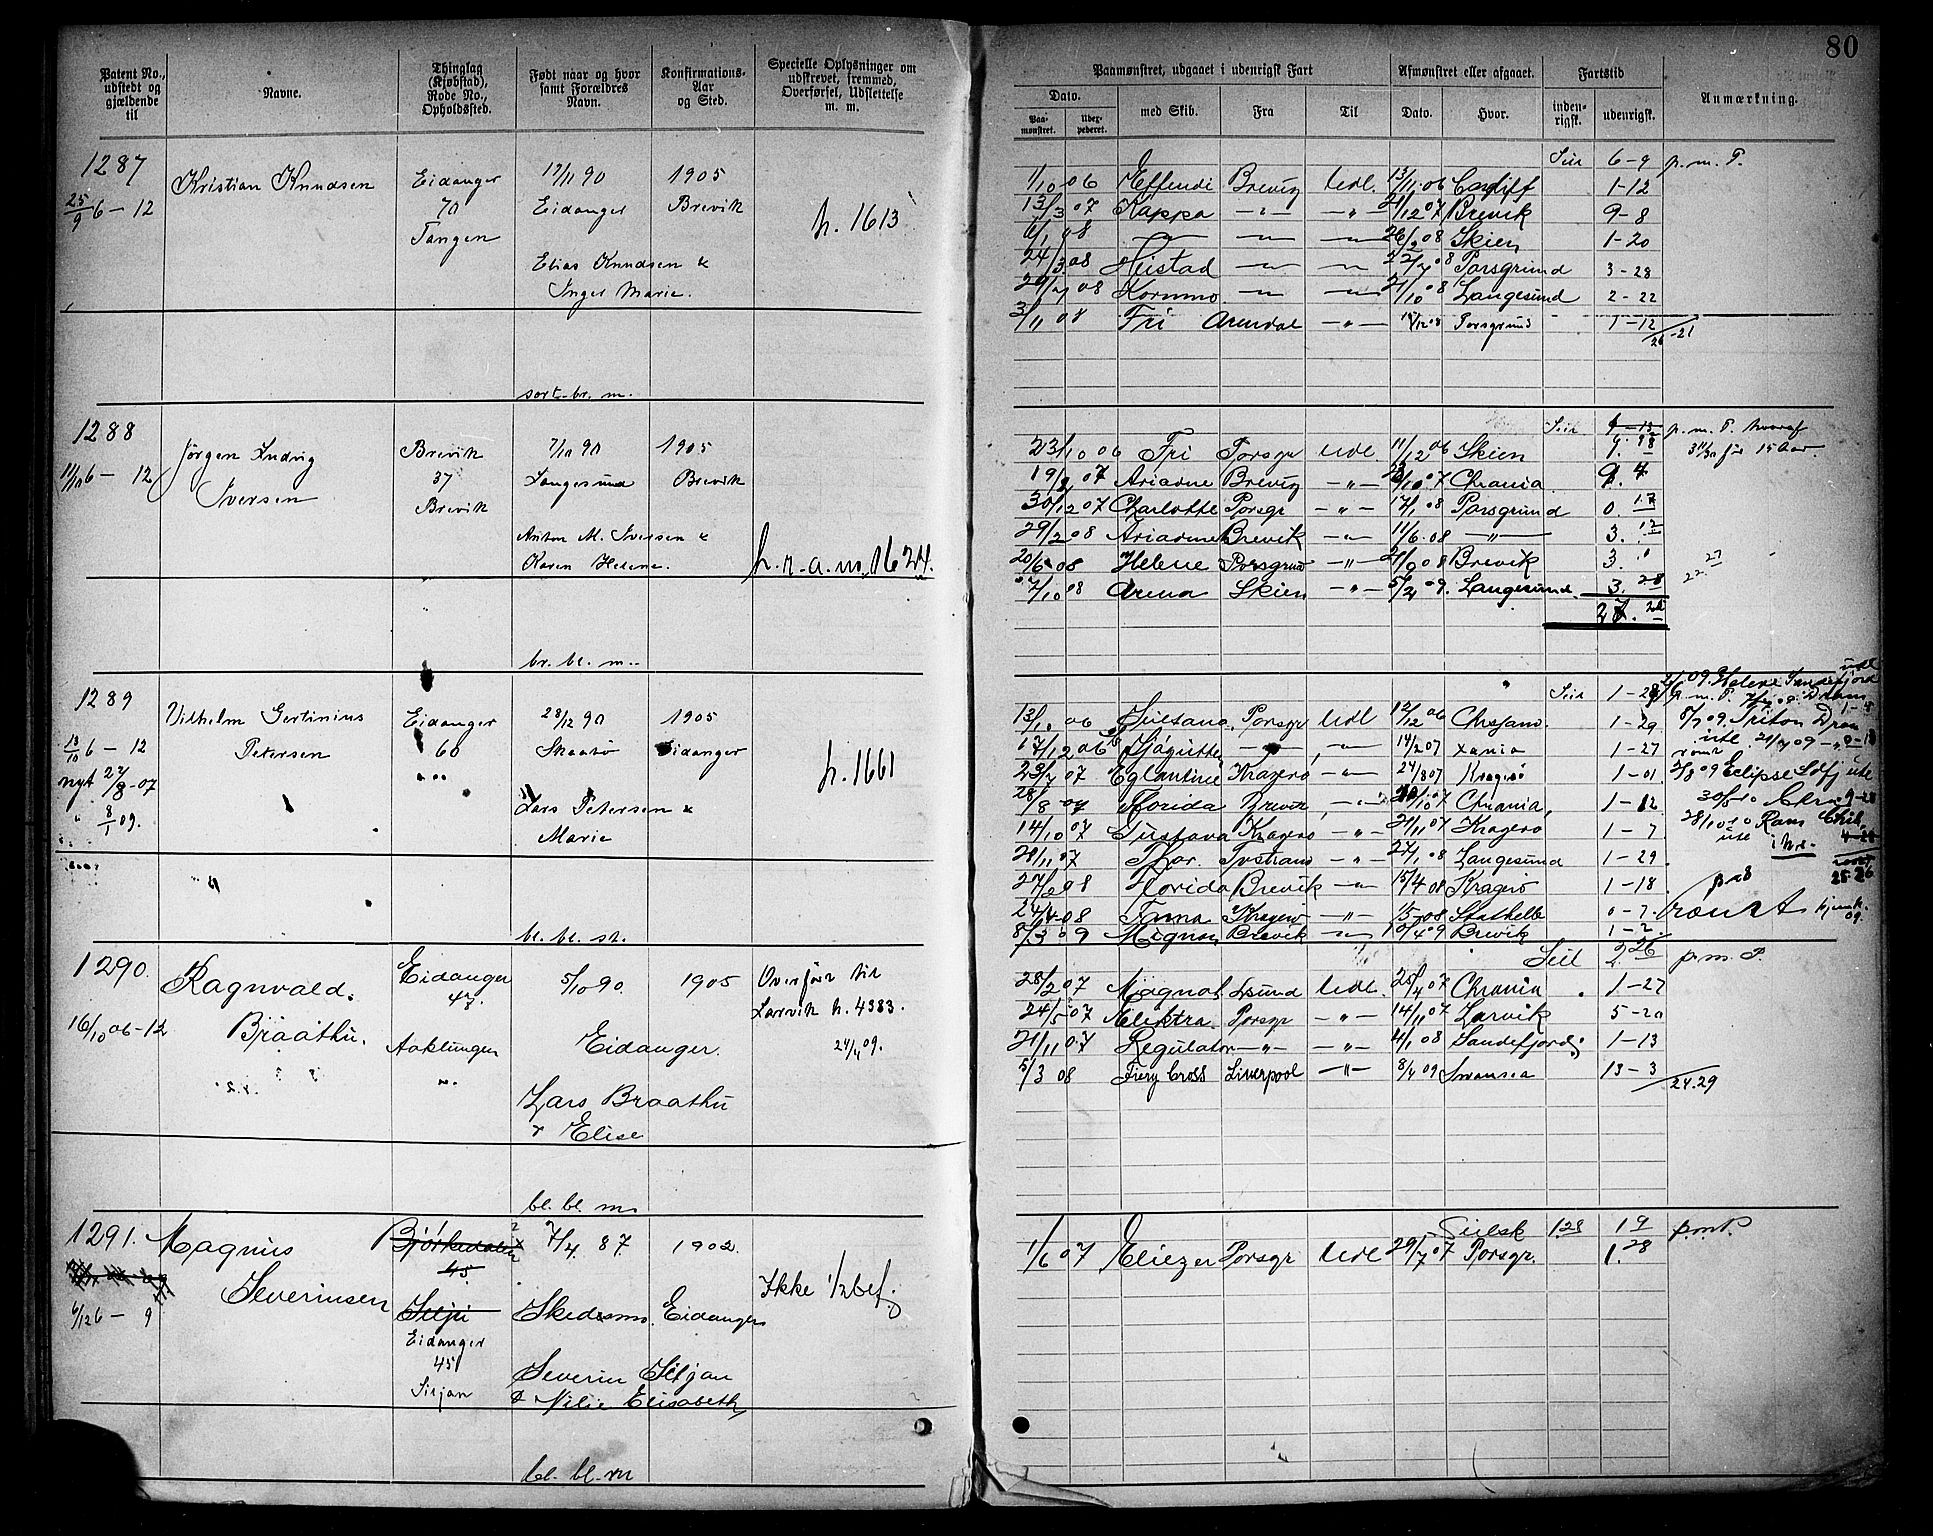 80
Patent No., udstedt og gjældende til
Navne.
Thinglag (Kjøbstad), Rode No., Opholdssted.
Født naar og hvor samt Forældres Navn.
Konfirmations-Aar og Sted.
Specielle Oplysninger om udskrevet, fremmed, Overførsel, Udslettelse m. m.
Paamønstret, udgaaet i udenrigsk Fart
Afmønstret eller afgaaet.
Fartstid
Anmærkning.
Dato.
Paa-mønstret.
med Skib.
Fra
Til
Dato.
Hvor.
inden-rigsk.
udenrigsk.
1287
Kristian Knudsen
Eidanger
17/11 90
1905
25/9 6 – 12
70
Eidanger
Brevik
h. 1613
Tangen
Elias Knudsen &
Inger Marie.
sort. br. m.
Seil 6-9 p. m. P.
1/10 06 Effendi Brevig Udl. 13/11 06 Cardiff 1-12
13/3 07 Kappa –"– –"– 21/12 07 Brevik 9-8
6/1 08 –"– –"– –"– 26/2 08 Skien 1-20
24/3 08 Heistad –"– –"– 22/7 08 Porsgrund 3-28
29/7 08 Kornmo –"– –"– 21/10 08 Langesund 2-22
3/11 08 Fri Arendal –"– 15/12 08 Porsgrund 1-12
26-21
1288
Jørgen Ludvig
Brevik
7/10 90
1905
11/10 6 – 12
Iversen
37
Langesund
Brevik
Brevik
Anton M. Iversen &
Karen Helene.
h. r. a. no. 1624.
br. bl. m.
Seil p. m. P. hvoraf
23/10 06 Fri Porsgr Udl 11/12 06 Skien 1. 18
for 15 Aar.
19/2 07 Ariadne Brevig –"– 07 Chrania
30/12 07 Charlotte Porsgr –"– 17/1 08 Porsgrund 0. 17
29/2 08 Ariadne Brevik –"– 11/6 08 –"– 3. 12
20/6 08 Helene Porsgrund –"– 21/9 08 Brevik 3. 1
22. 27
7/10 08 Arena Skien –"– 5/2 09. Langesund. 3. 28
1289
Vilhelm Gertinius
Eidanger
28/12 90
1905
18/10 6 – 12
Petersen
60
Skaatø
Eidanger
nyt 27/8 – 07
h. 1661
" 8/1 09.
Lars Petersen &
Marie
bl. bl. st.
Seil 1-28 p. m. P.
09. Helene Sandefjord udl
13/10 06 Porsgr Udl 12/12 06 Chrjania 1-29
8/7 09 Triton Dram
17/12 06 –"– –"– 14/2 07 Xania 1-27
07 Eglantine Kragerø –"– 24/8 07 Kragerø 1-01
09 Eclipse
28/8 07 Florida Brevik –"– 07 Chrania 1-12
14/10 07 Gustava Kragerø –"– 21/11 07 Kragerø 1-7
28/11 07 Thor. Tvstrand –"– 27/1 08 Langesund 1-29.
27/2 08 Florida Brevik –"– 15/4 08 Kragerø 1-18.
08 Fama Kragerø –"– 08 Stathelle 0-7.
8/3 09 Mignon Brevik –"– 09 Brevik 1-2.
1290.
Ragnvald.
Eidanger
5/10 90.
1905
Overført til
47.
Larvik h. 4383.
16/10 06-12
Braathu.
Aaklungen
Eidanger.
24/4 09.
Lars Braathu
& Elise
bl. bl. m.
Seil 2. 26 p. m. P.
28/2 07 Magnat Lsund Udl. 25/4 07 Chrania 1-27
24/5 07 Elektra. Porsgr –"– 14/11 07 Larvik 5-20
21/11 07 Regulator –"– –"– 4/1 08 Sandefjord 1-13
5/3 08 Fiery Cross Liverpool –"– 8/4 09 Swansea 13-3
24.29
1291.
Magnus
Bjørkedalen
7/4 87.
1902.
45
Severinsen
Ikke 1/2 bef.
6/12 6 – 9
Silju
Skedsmo.
Eidanger
Eidanger
45
Siljan
Severin Siljan
& Nilie Elisabeth
bl. bl. m
Seilsk 1 28 1 9 p.m.P.
1/6 07 Eliezer Porsgr Udl 29/7 07 Porsgr. 1. 28